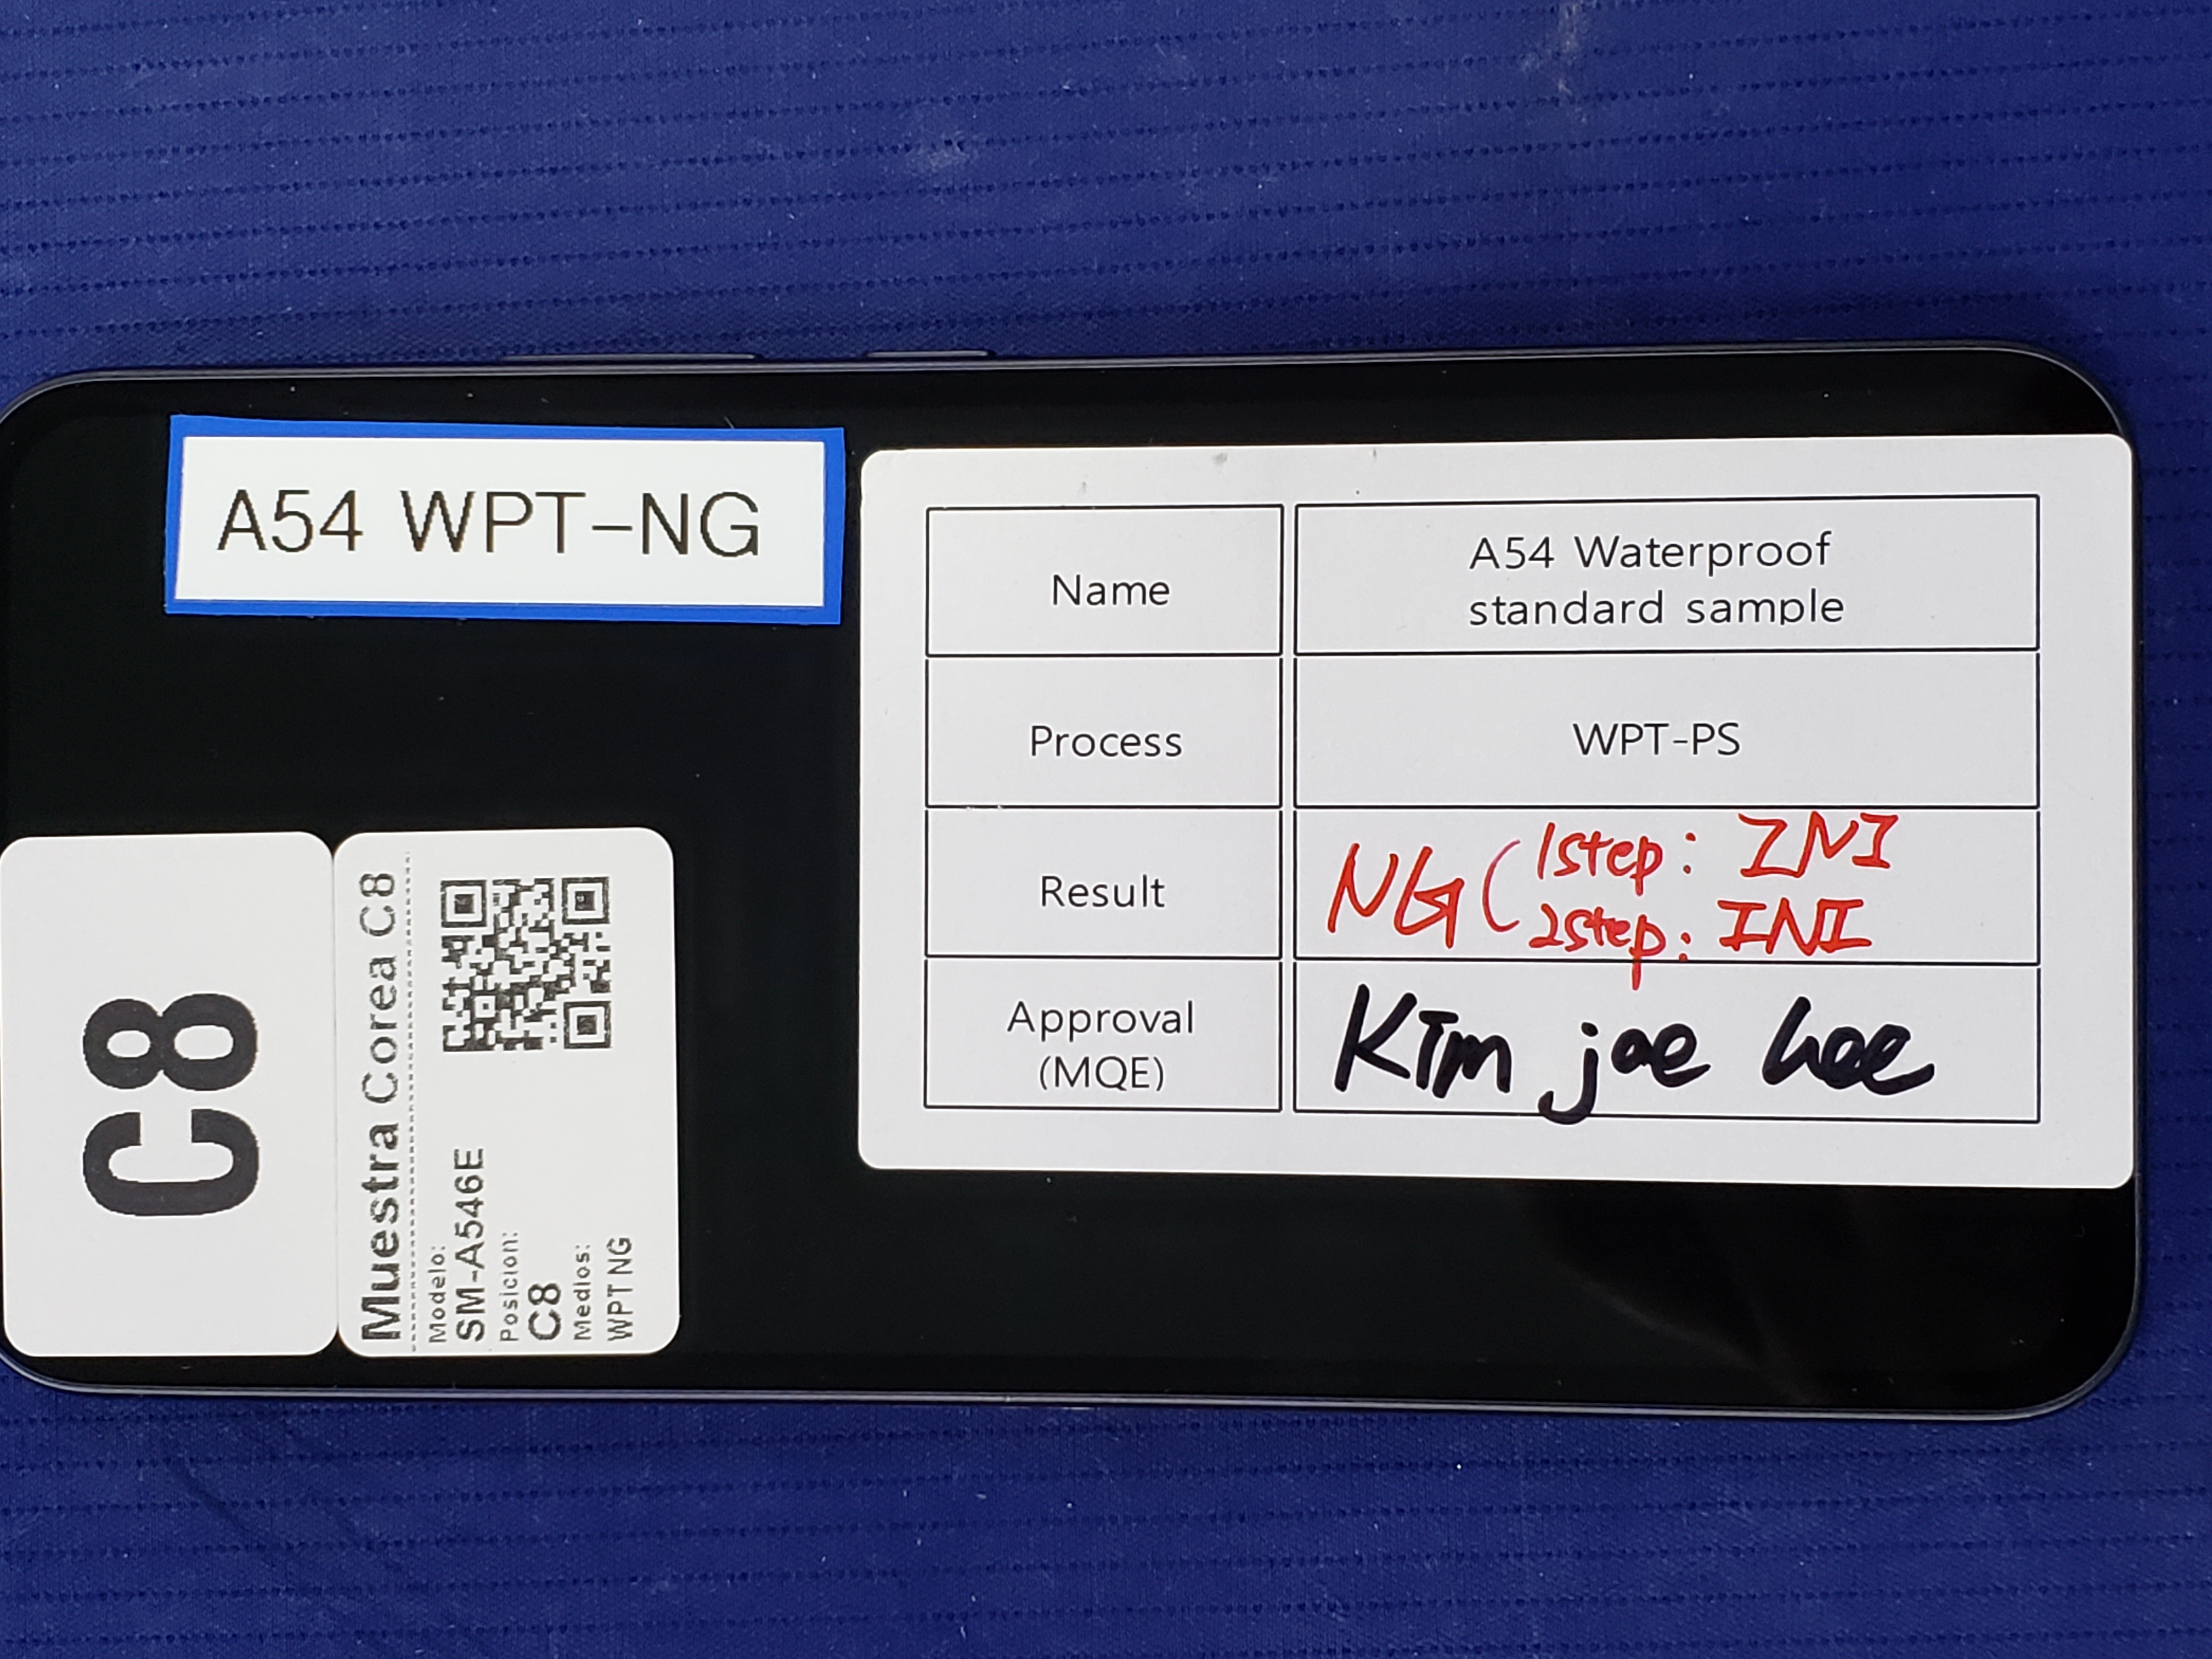 C8
Muestra Corea C8
Modelo:
SM-A546E
Posicion:
C8
Medios:
WPT NG
A54 WPT-NG
Name
A54 Waterproof
standard sample
Process
WPT-PS
Result
NG (1step: ZNI
2step: INI
Approval
(MQE)
Kim jae hee